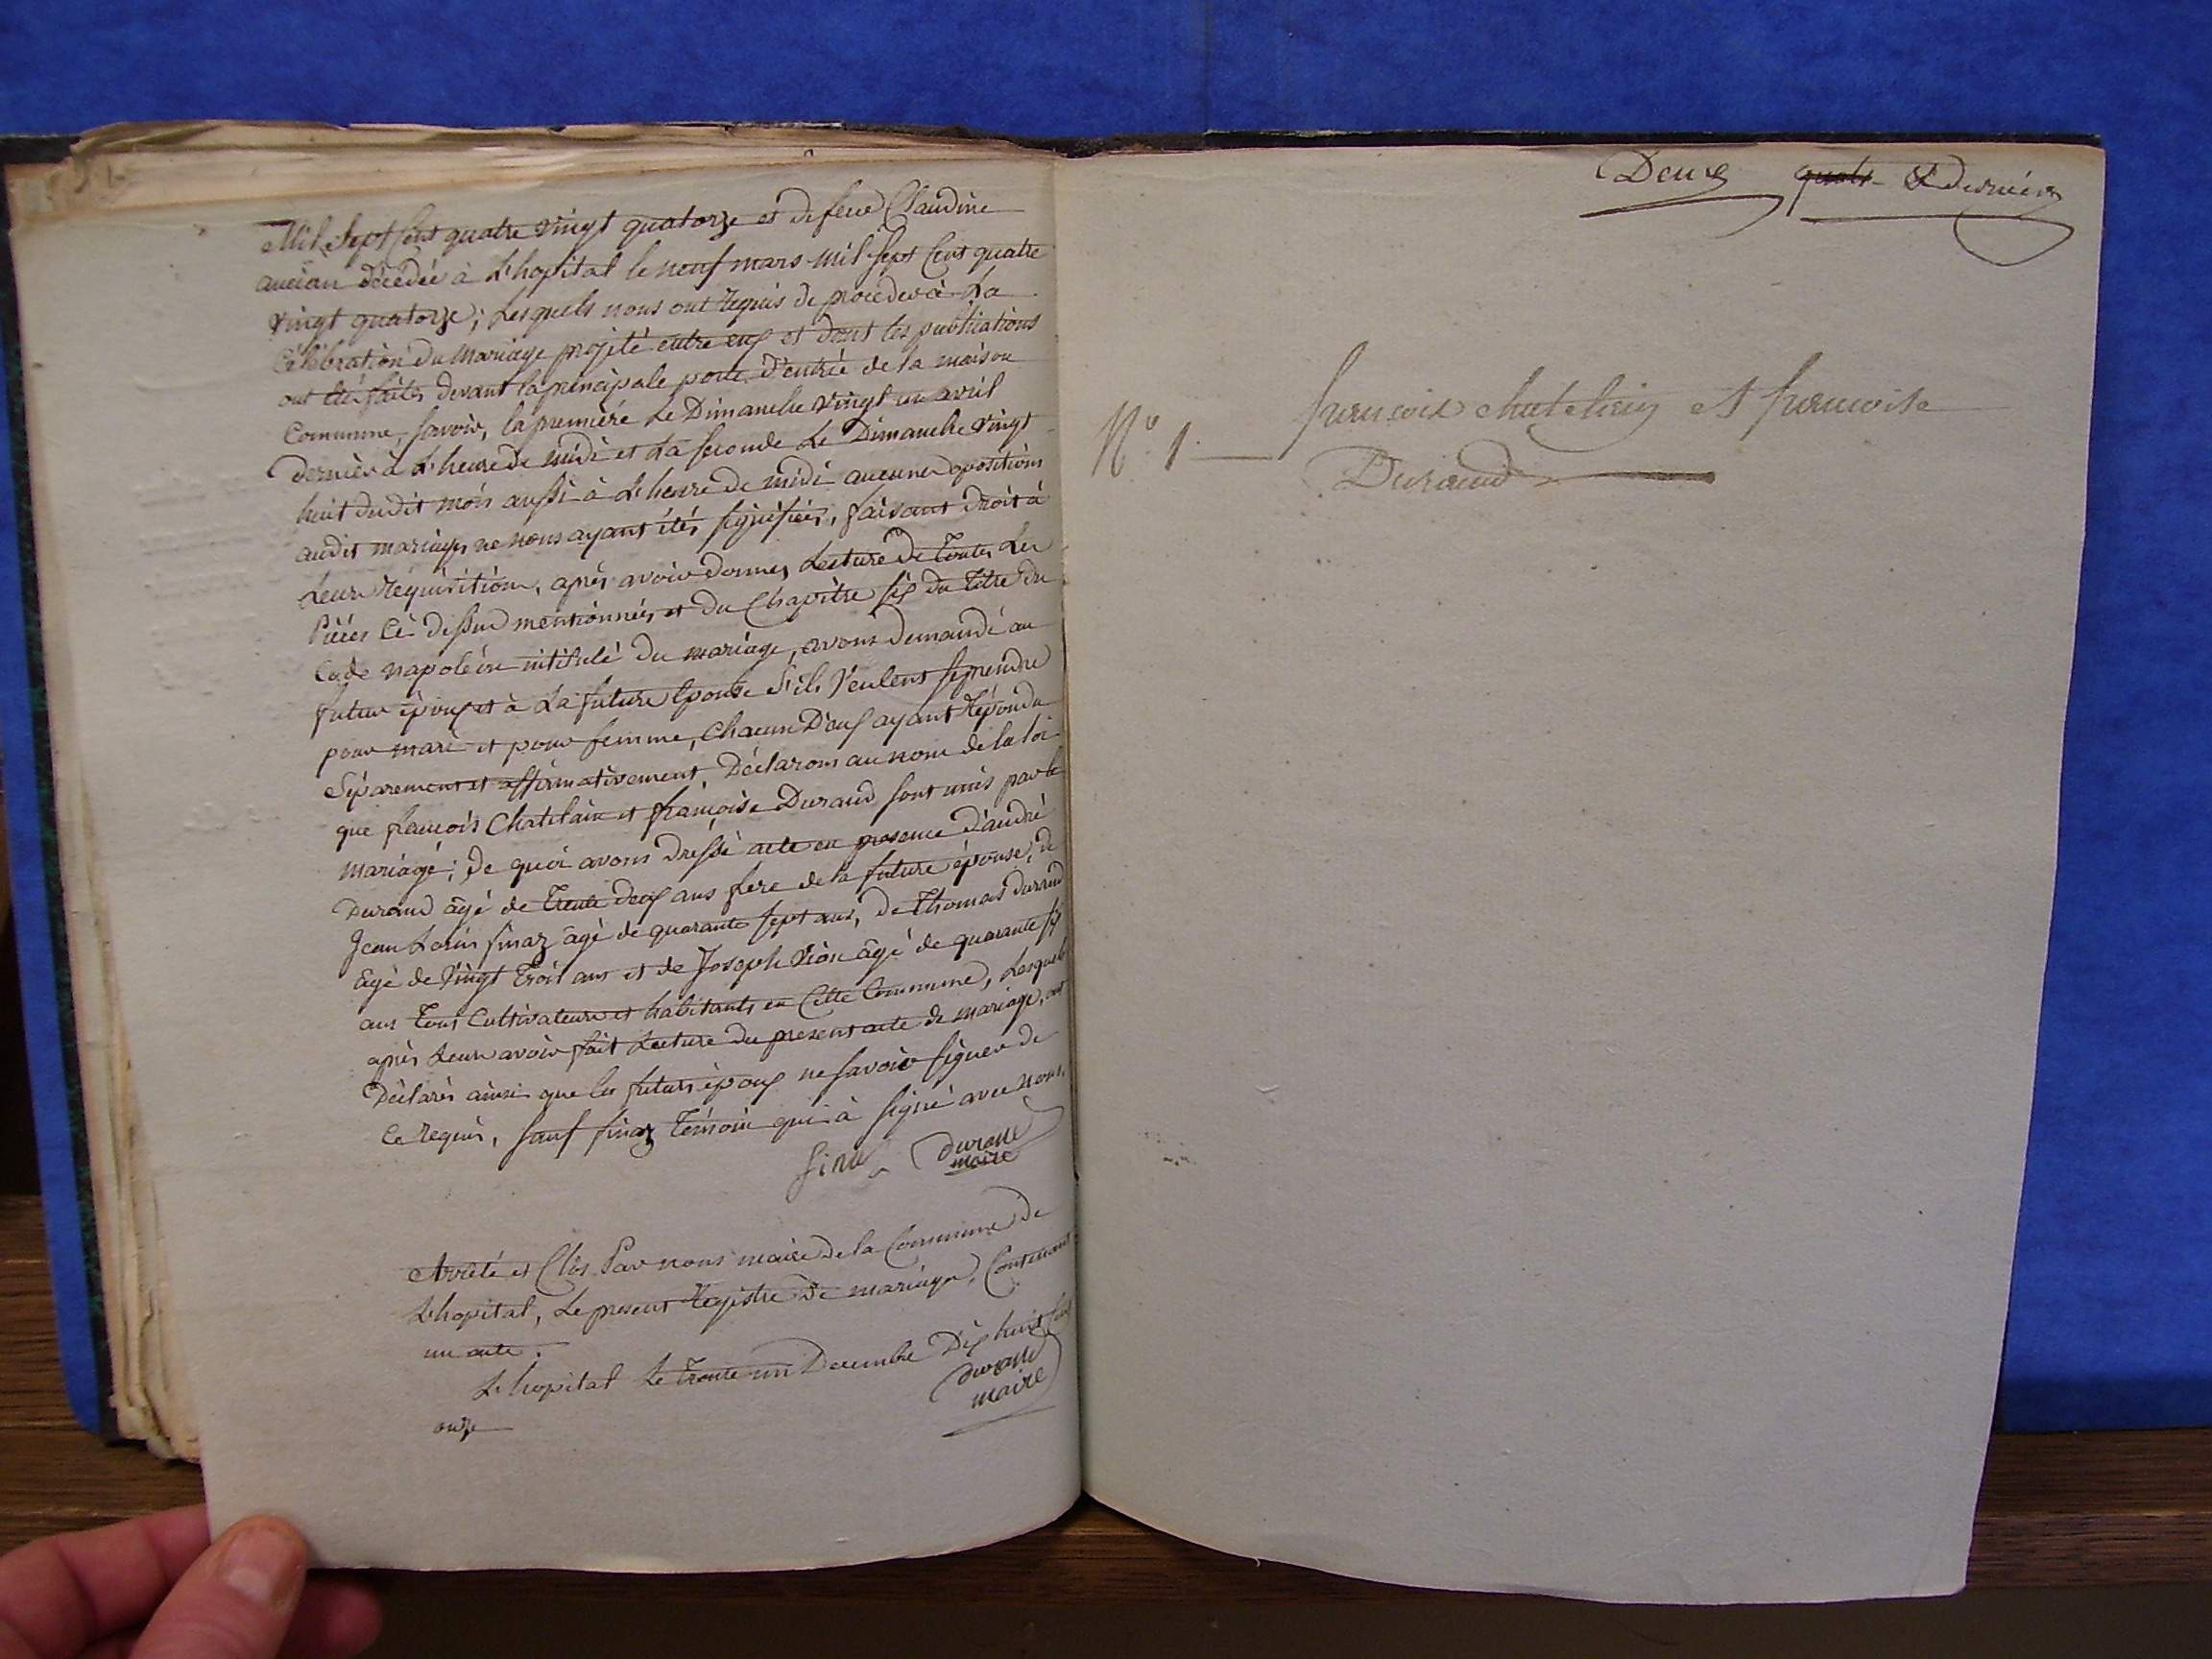 Mil Sept Cent quatre vingt quatorze et de feue Claudine
ancian décédée à L'hopital le neuf mars mil sept Cent quatre
vingt quatorze; Lesquels nous ont requis de proceder à La
Célébration du Mariage projeté entre eux et dont les publications
ont été faites devant la principale porte d'entrée de la maison
Commune, Savoir, la premiére Le Dimanche vingt un avril
dernier à L'heure de midi et La seconde Le Dimanche vingt
huit dudit mois aussi à L'heure de midi aucunes opositions
audit mariages ne nous ayant étés signifiées, faisant droit à
Leur requisition, après avoir donnés Lecture de toutes Les
Pièces Ci dessus mentionnées et du Chapitre six du titre du
Code napoléon intitulé du mariage, avons demandé au
futur époux et à La future épouse S'ils veulent se prendre
pour mari et pour femme, Chacun D'eux ayant répondu
Séparement et affirmativement, Déclarons au nom de la loi
que françois Chatelain et françoise Durand sont unis par le
mariage; de quoi avons dressé acte en presence d'andré
Durand âgé de trente deux ans frère de la future épouse, de
Jean finaz âgé de quarante sept ans, de thomas durand
âgé de vingt trois ans et de Joseph âgé de quarante six
ans tous Cultivateurs et habitants en Cette Commune, Lesquels
après Leur avoir fait Lecture du present acte de mariage, ont
Déclarés ainsi que les futurs époux ne savoir signer de
Ce requis, sauf finaz témoin qui à signé avec nous.
finaz durand
maire
Arrêté et Clos Par nous maire de la Commune de
L'hopital, Le present registre de mariages, Contenant
un acte.
L'hopital Le trente un Decembre Dix huit Cent
onze
durand
maire
Deux quatre & dernier
N.º 1 françois chatelain et francoise
Durand